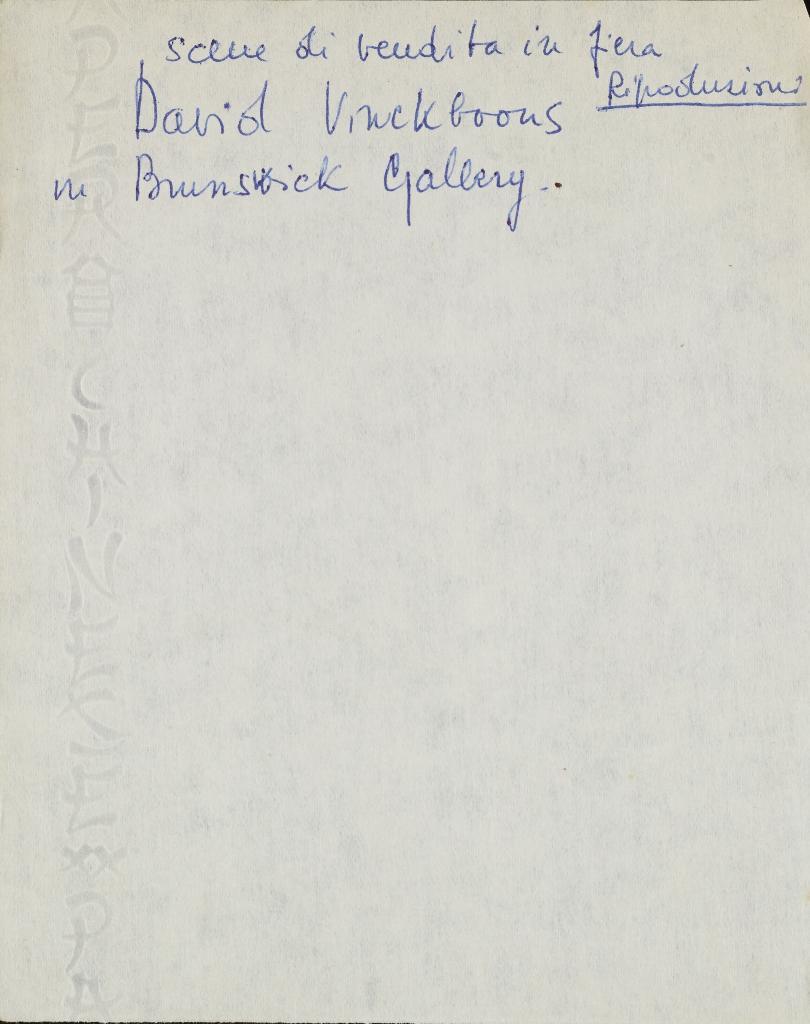 scene di vendita in fiera
Riproduzioni
David Vinckboons
in Brunswick Gallery..